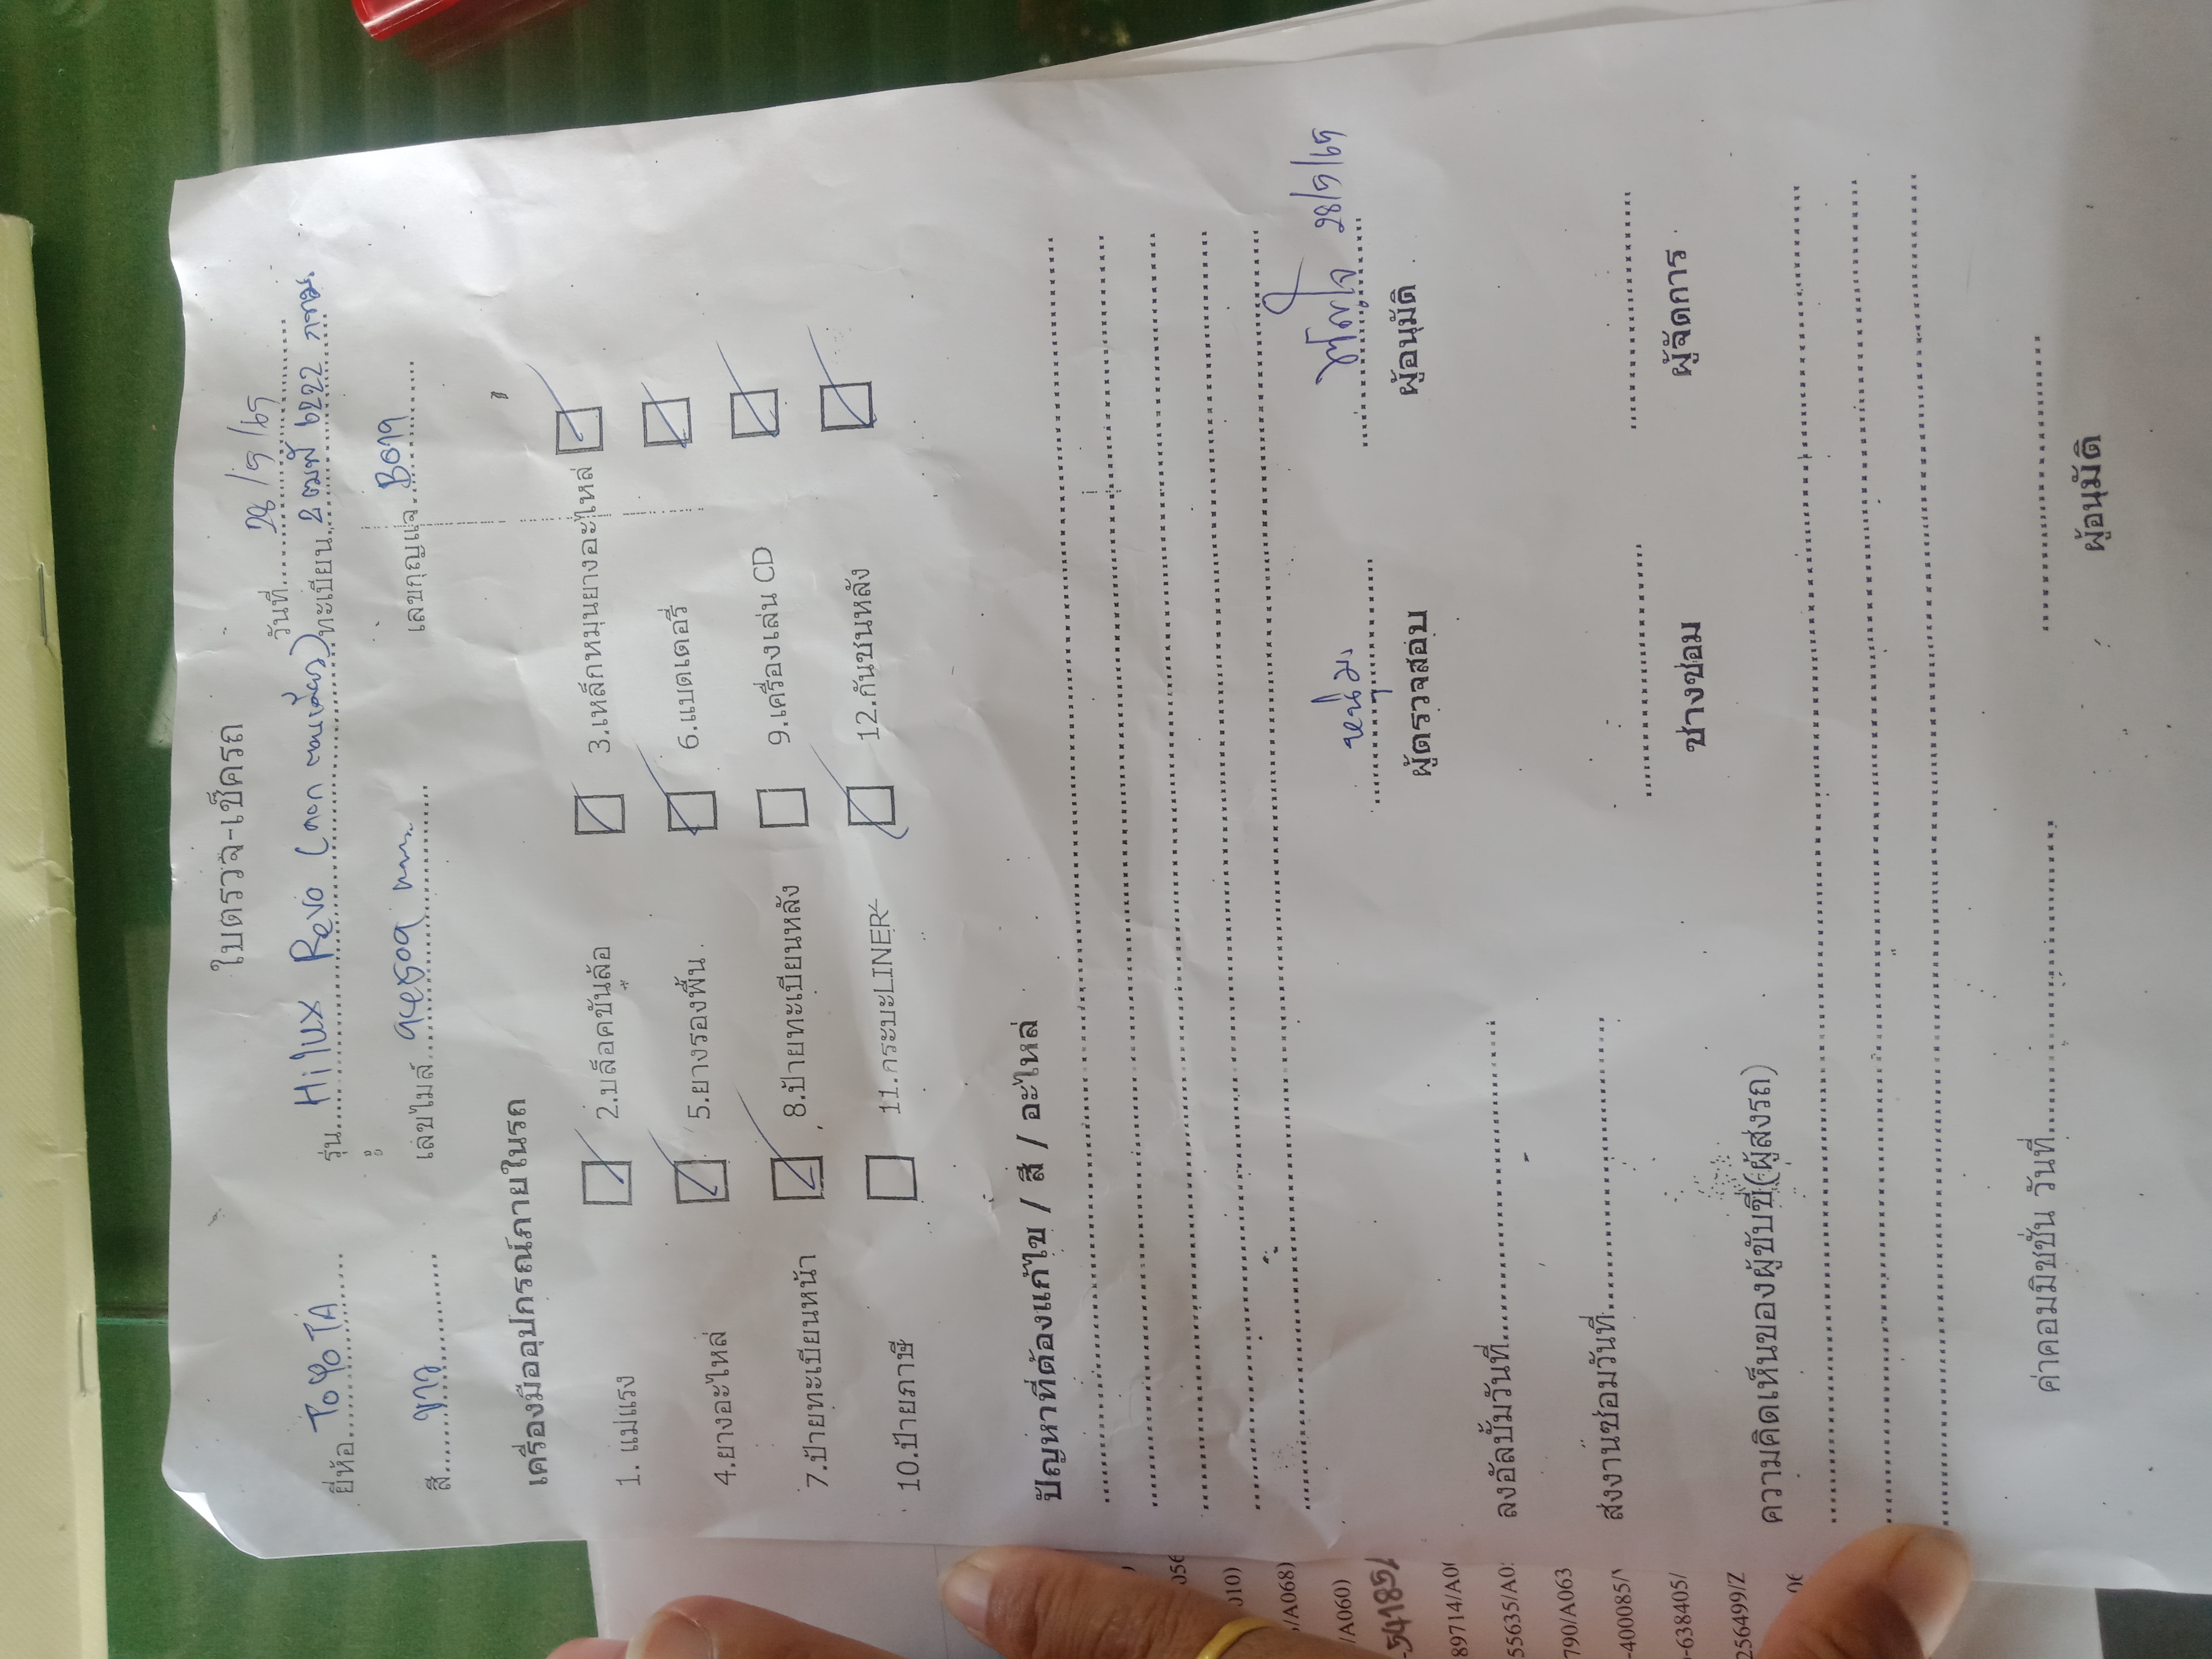 ใบตรวจ-เช็ครถ
วันที่ 28/5/65
ยี่ห้อ TOYOTA รุ่น Hilux Revo ทะเบียน 2 ฒฬ 6222 กทม.
สี ขาว เลขไมล์ เลขกุญแจ
เครื่องมืออุปกรณ์ภายในรถ
1. แม่แรง 2.บล็อคขันล้อ 3.เหล็กหมุนยางอะไหล่
4.ยางอะไหล่ 5.ยางรองพื้น 6.แบตเตอรี่
7.ป้ายทะเบียนหน้า 8.ป้ายทะเบียนหลัง 9.เครื่องเล่น CD
10.ป้ายภาษี 11.กระบะLINER 12.กันชนหลัง
ปัญหาที่ต้องแก้ไข / สี / อะไหล่
หนุ่ม 28/5/65
ผู้ตรวจสอบ ผู้อนุมัติ
ลงอัลบั้มวันที่
ส่งงานซ่อมวันที่
ช่างซ่อม ผู้จัดการ
ความคิดเห็นของผู้ขับขี่(ผู้ส่งรถ)
ค่าคอมมิชชั่น วันที่
ผู้อนุมัติ
010)
/A068)
/A060)
89714/A0
55635/A0
790/A063
-400085/
-638405/
256499/Z